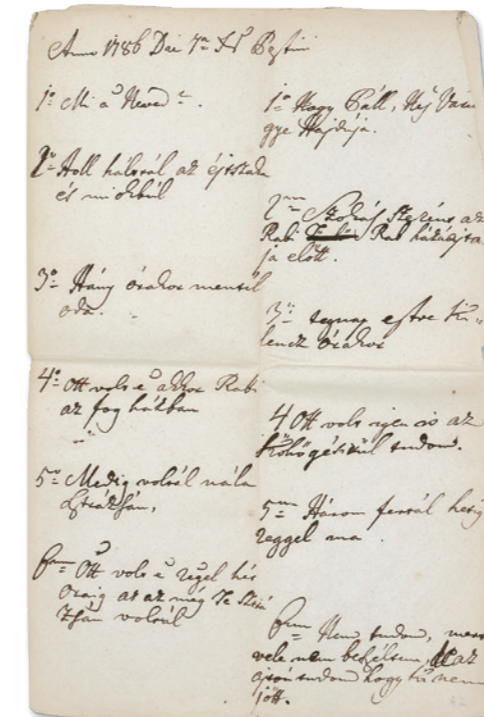 Anno 1786 Die 7a Xb Pestini
1o Mi a Neved?
2o Holl háltál az éjtszaka
és miokbúl
3o Hány órakor mentél
oda.
4o Ott volt é akkor Rabi
az fog házban
5o Medig voltál nála
Strázsán,
6o Ott volt é regel hét
oraig az az még Te Strá
zsán voltál
1o Nagy Páll, Ns Várme
gye Hajdúja.
2o Szokás Szerént az
Rabi Rab ház ajta
ja előtt.
3o tegnap estve Ki-
lencz órakor
4 Ott volt igen is az
Köhögésirűl tudom.
5o Három fertál hétig
reggel ma.
6o Nem tudom, mert
vele nem beszéltem, de az
ajtón tudom hogy ki nem
jött.